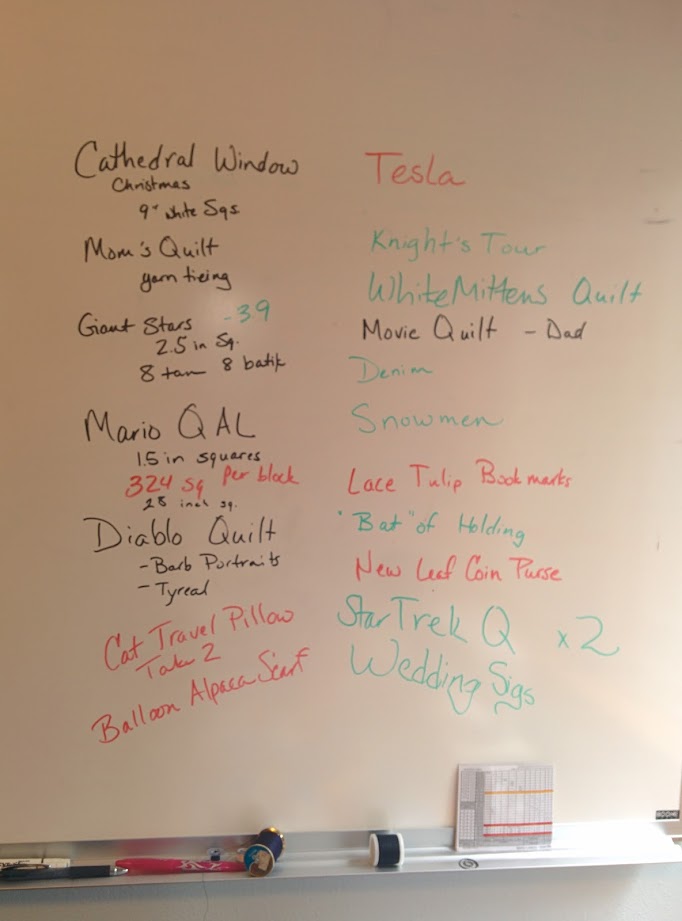 Cathedral Window
Christmas
9" white Sqs
Mom's Quilt
yarn tieing
Giant Stars - 3.9
2.5 in Sq.
8 tan 8 batik
Mario QAL
1.5 in squares
324 sq Per block
28 inch sq.
Diablo Quilt
- Barb Portraits
- Tyreal
Cat Travel Pillow
Take 2
Balloon Alpaca Scarf
Tesla
Knight's Tour
WhiteMittens Quilt
Movie Quilt - Dad
Denim
Snowmen
Lace Tulip Bookmarks
"Bat" of Holding
New Leaf Coin Purse
Star Trek Q x2
Wedding Sigs